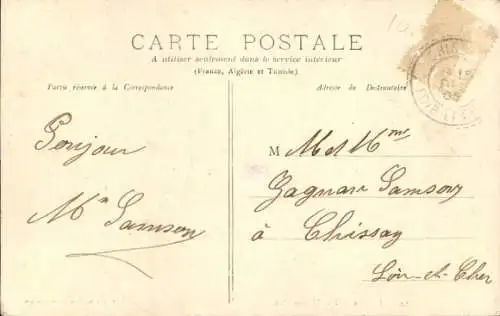 CARTE POSTALE
A utiliser seulement dans le service intérieur
(France, Algérie et Tunisie)
Partie réservée à la Correspondance
Adresse du Destinataire
Bonjour
Mn Samson
M M et Mme
Samson
à Chissay
Loir-et-Cher